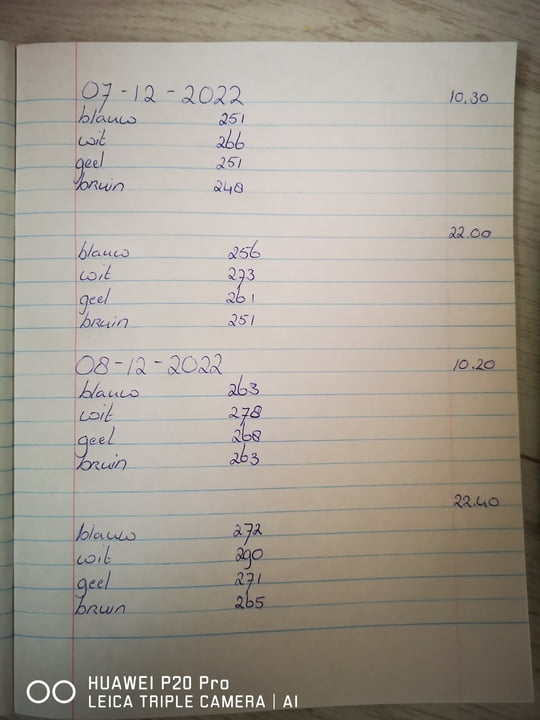 07-12-2022 10.30
blauw 251
wit 266
geel 251
bruin 248
22.00
blauw 256
wit 273
geel 261
bruin 251
08-12-2022 10.20
blauw 263
wit 278
geel 268
bruin 263
22.40
blauw 272
wit 290
geel 271
bruin 265
HUAWEI P20 Pro
LEICA TRIPLE CAMERA | AI